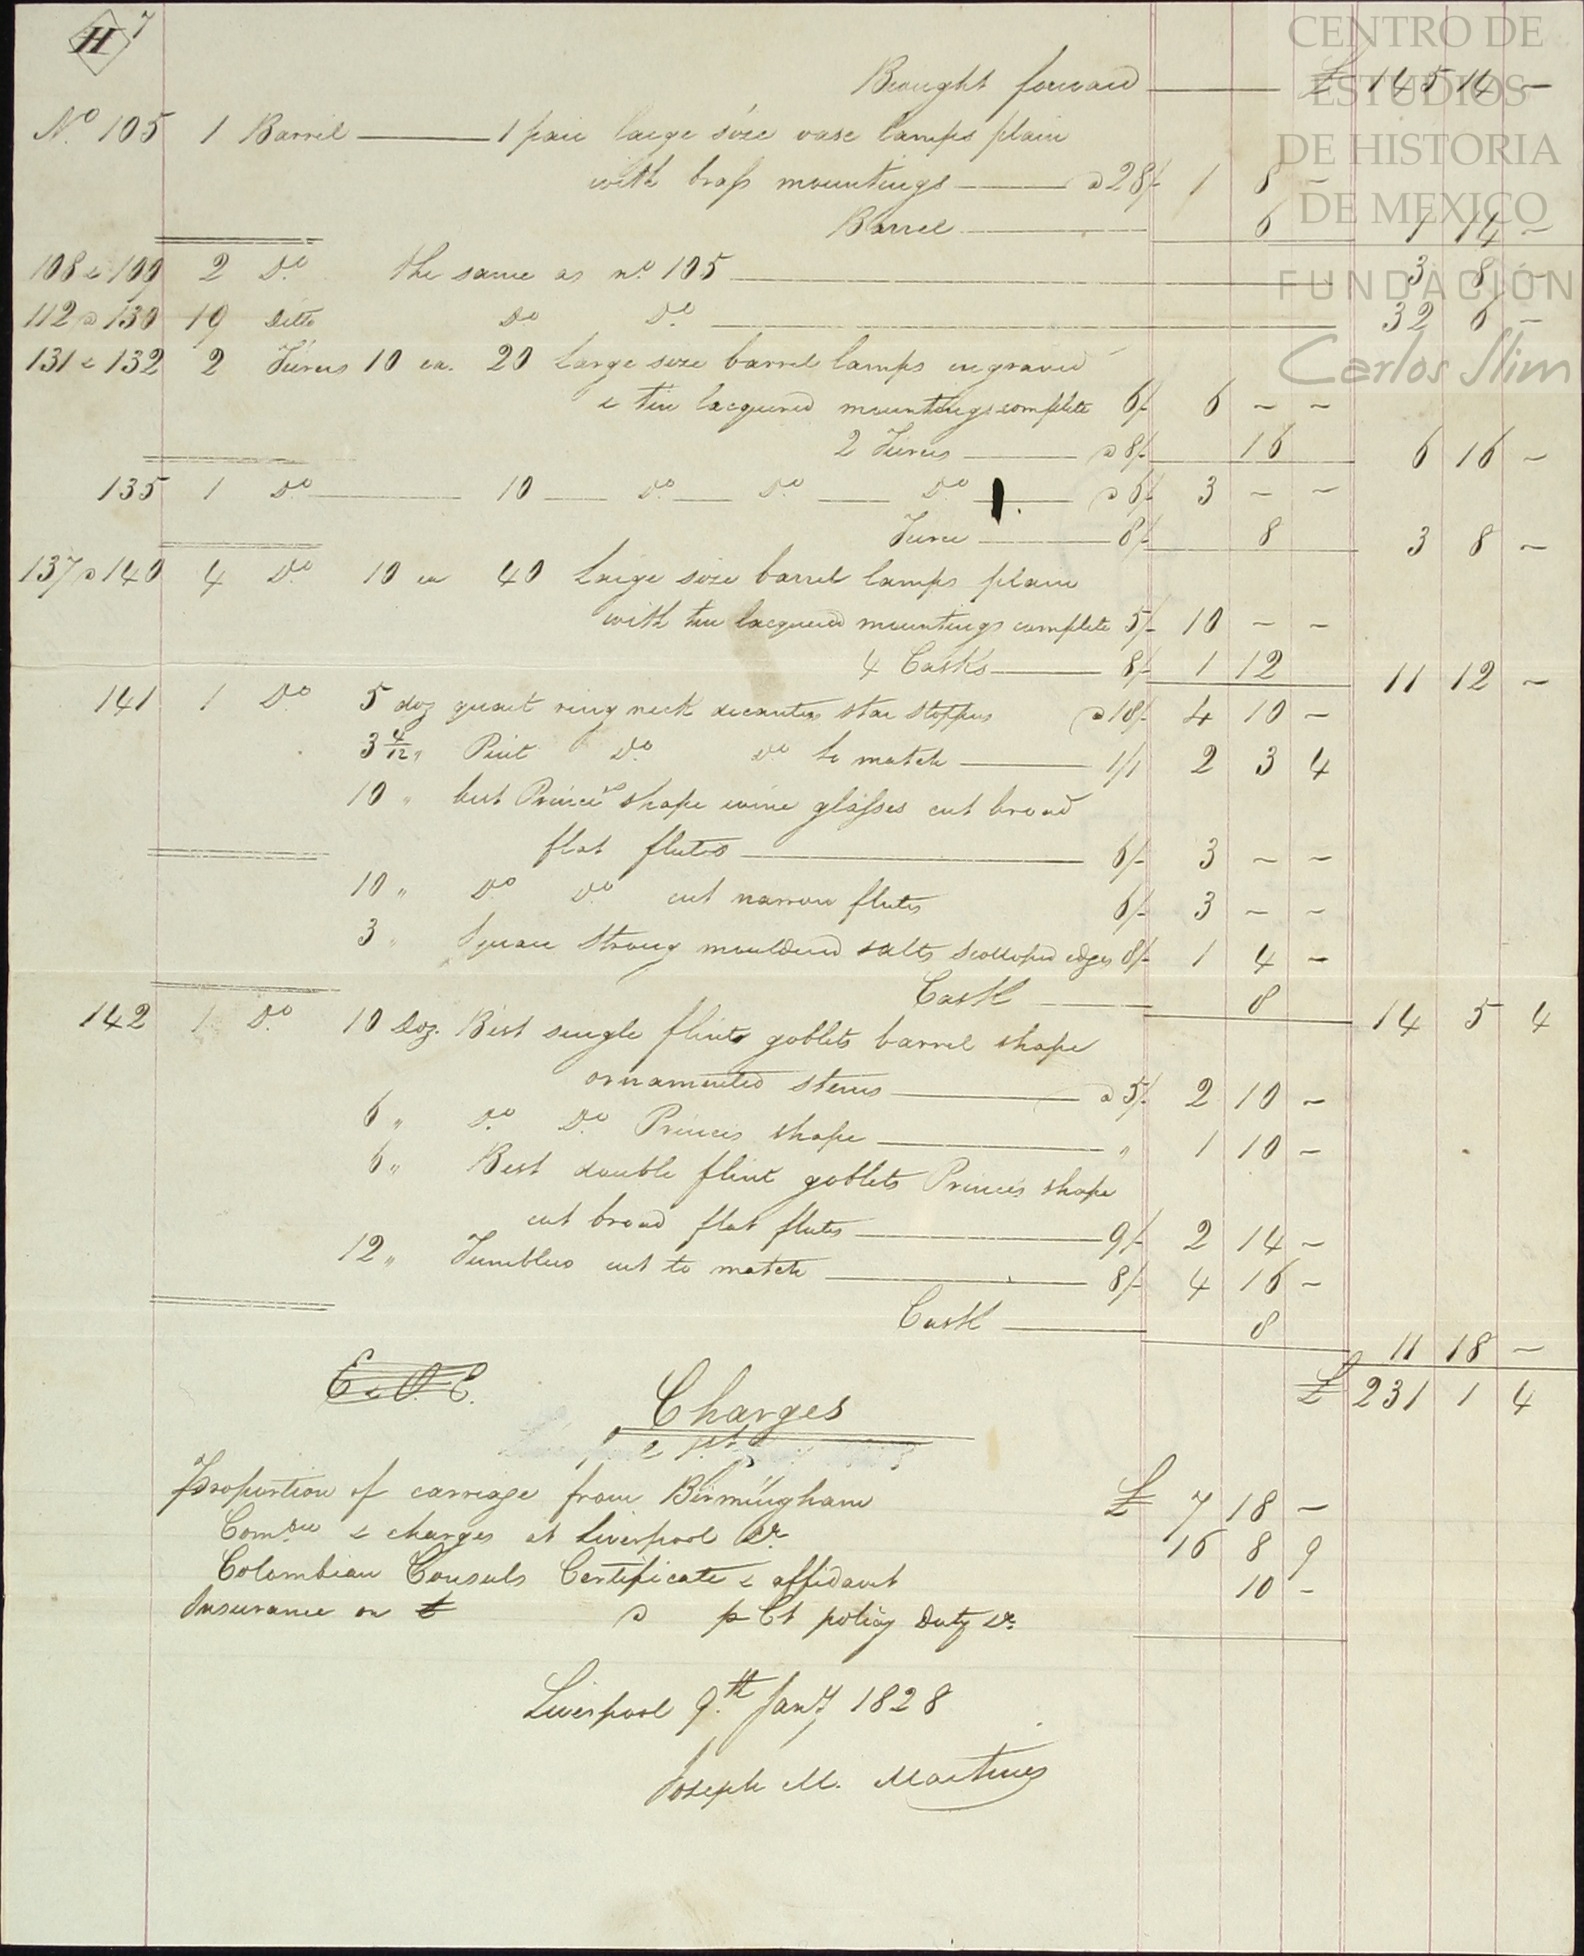 H 7
Brought forward £ 145 14 –
No. 105 1 Barrel 1 pair large size vase lamps plain
with brass mountings a 28/- 1 8 –
Barrel 6 1 14 –
108 & 109 2 Do. the same as no. 105 3 8 –
112 a 130 19 Ditto Do Do. 32 6 –
131 & 132 2 Tierces 10 ea. 20 Large size barrel lamps engraved
& tin lacquered mountings complete 6/- 6 – –
2 Tierces a 8/- 16 6 16 –
135 1 Do 10 Do. Do. Do a 6/- 3 – –
Tierce 8/- 8 3 8 –
137 a 140 4 Do 10 ea 40 Large size barrel lamps plain
with tin lacquered mountings complete 5/- 10 – –
4 Casks 8/- 1 12 11 12 –
141 1 Do 5 doz quart ring neck decanters star stoppers a 18/- 4 10 –
3 4/12 " Pint Do. Do to match 2 3 4
10 " best Princes shape wine glasses cut broad
flat flutes 6/- 3 – –
10 " Do Do. cut narrow flutes 6/- 3 – –
3 " Square strong mouldered salts scolloped edges 8/- 1 4 –
Cask 8 14 5 4
142 1 Do. 10 Doz. Best single flint goblets barrel shape
ornamented stems a 5/- 2 10 –
6 " Do. Do. Princes shape " 1 10 –
6 " Best double flint goblets Princes shape
cut broad flat flutes 9/- 2 14 –
12 " Tumblers cut to match 8/- 4 16 –
Cask 8 11 18 –
£ 231 1 4
E & O. E.
Charges
Proportion of carriage from Birmingham £ 7 18 –
Comon & charges at Liverpool &c 16 8 9
Colombian Consuls Certificate & affidavit 10 –
Insurance on £ a p Ct policy Duty &c.
Liverpool 9th Jany 1828
Joseph M. Martines
CENTRO DE
ESTUDIOS
DE HISTORIA
DE MEXICO
FUNDACIÓN
Carlos Slim